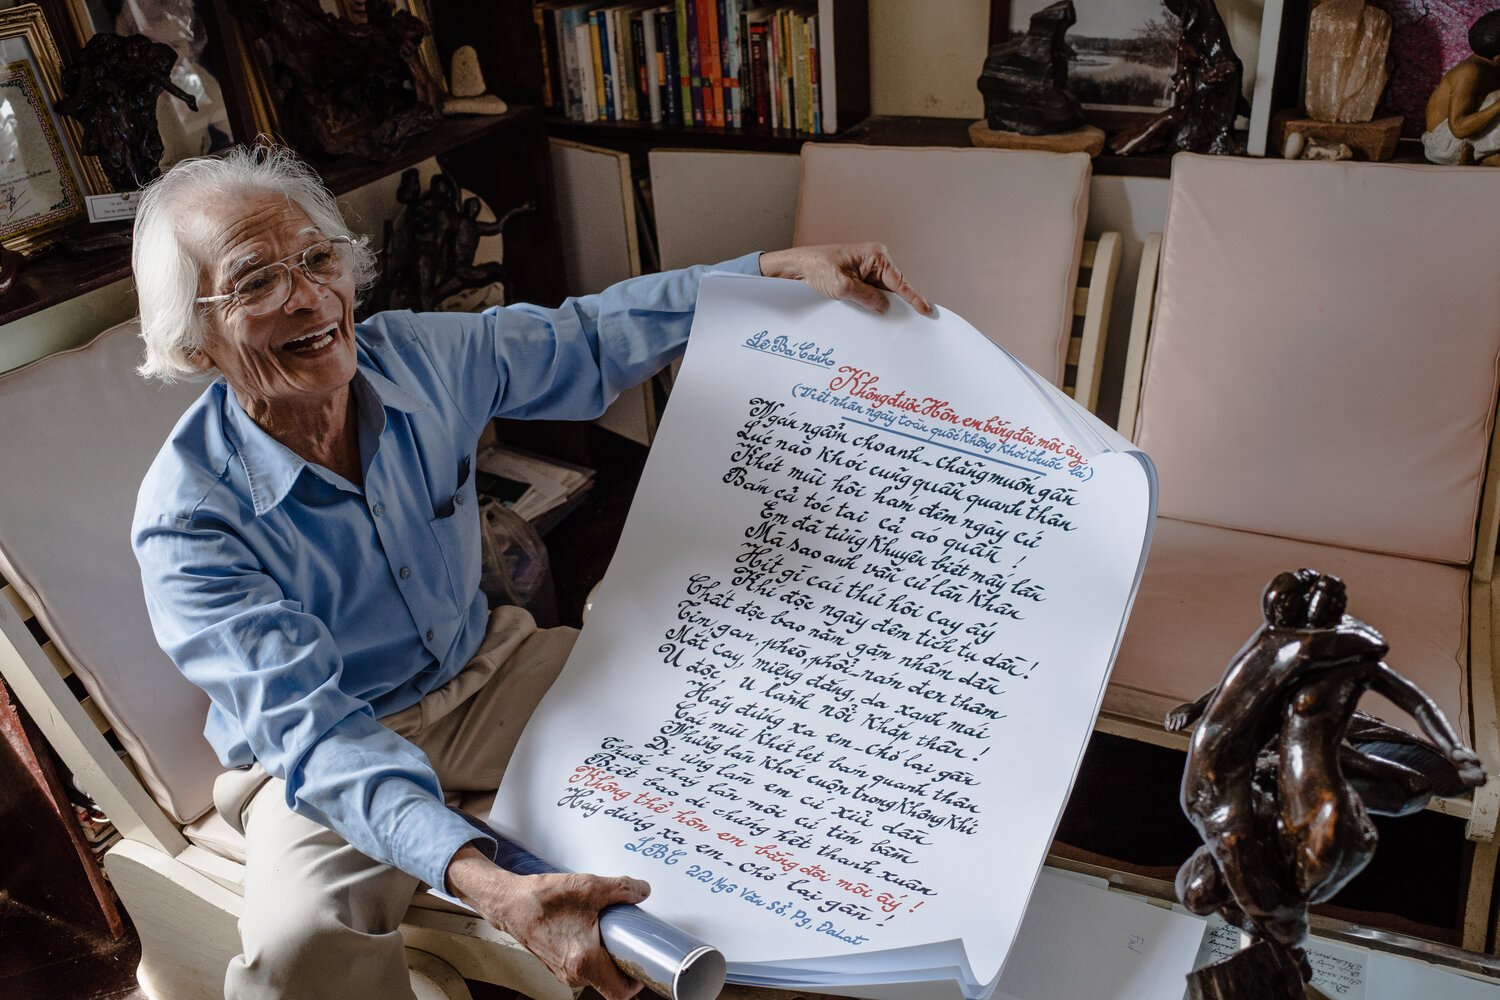 Lê Bá Cảnh
Không được Hôn em bằng đôi môi ấy
(Viết nhân ngày toàn quốc không khói thuốc lá)
Ngán ngẩm cho anh - Chẳng muốn gần
Lúc nào khói cũng quẩn quanh thân
Khét mùi hôi hám đêm ngày cứ
Bán cả tóc tai cả áo quần!
Em đã từng khuyên biết mấy lần
Mà sao anh vẫn cứ lần khân
Hít gì cái thứ hôi cay ấy
Khí độc ngày đêm tích tụ dần!
Chất độc bao năm gặm nhấm dần
Tim, gan, phèo, phổi, nám đen thâm
Mắt cay, miệng đắng, da xanh mai
U độc, U lành nổi khắp thân!
Hãy đứng xa em - chớ lại gần
Cái mùi khét lẹt bán quanh thân
Những làn khói cuộn trong không khí
Dị ứng làm em cứ xửu dần
Thuốc cháy lên môi cứ tím bầm
Biết bao di chứng hết thanh xuân
Không thể hôn em bằng đôi môi ấy!
Hãy đứng xa em - chớ lại gần!
LBC 22 Ngô Văn Sở, P9, Dalat